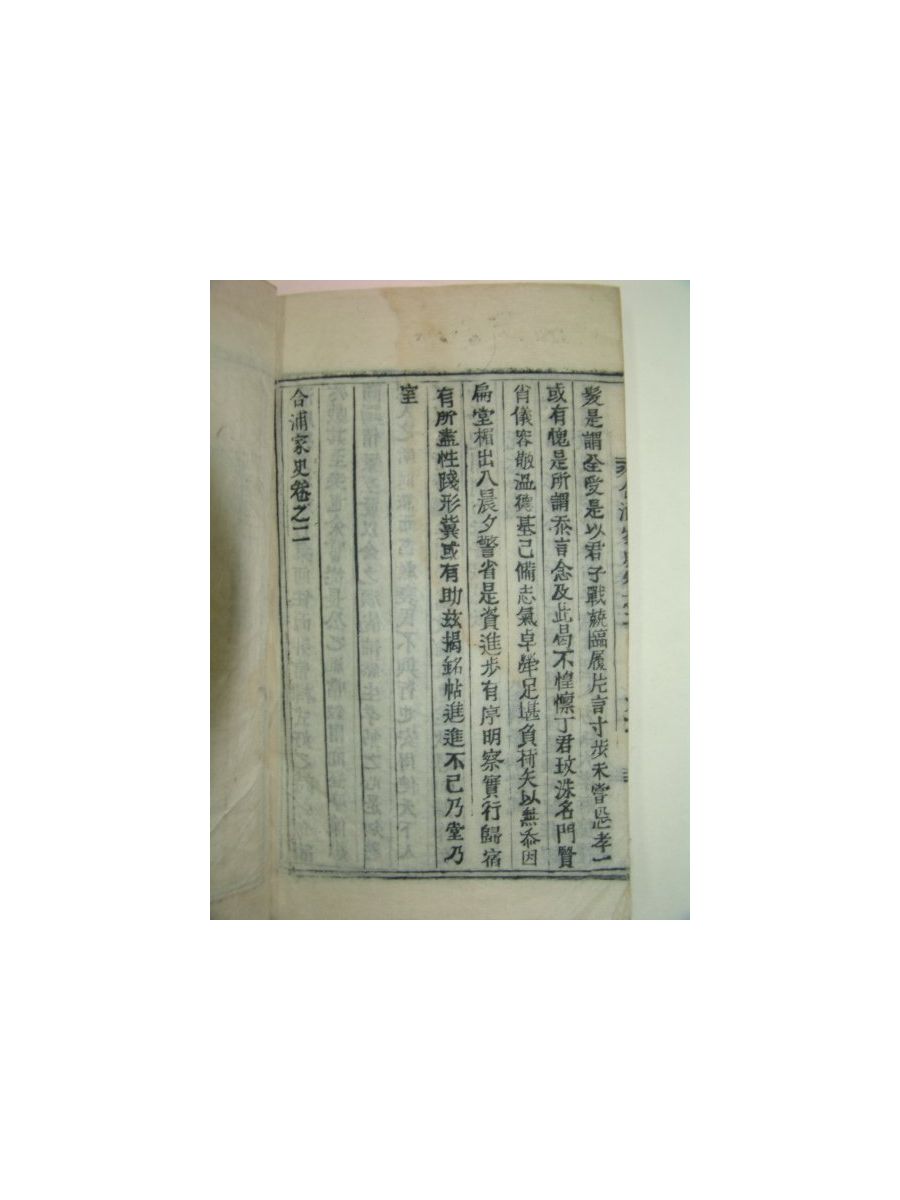 髮是謂全愛是以君子戰兢臨履片言寸步未嘗忘孝一
或有愧是所謂忝言念及此曷不惶懍丁君玟洙名門賢
肖儀容敬溫德基己備志氣卓犖足堪負荷矢以無忝因
扁堂楣出入晨夕警省是資進步有序明察實行歸宿
有所盡性踐形冀或有助玆揭銘帖進進不已乃堂乃
室
合浦家史卷之二